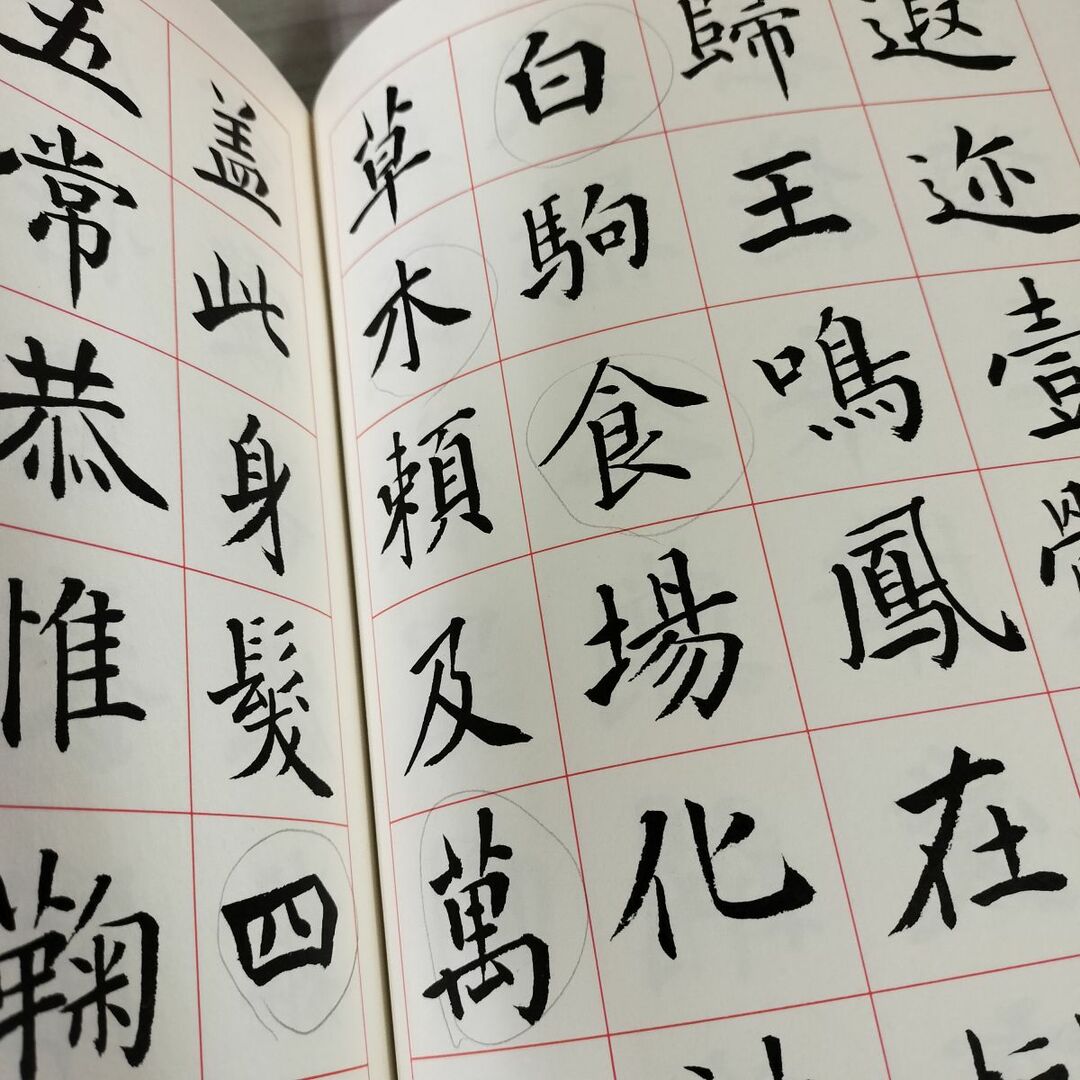 遐迩壹
歸王鳴鳳在
白駒食場化
草木頼及萬
盖此身髮四
五常恭惟鞠